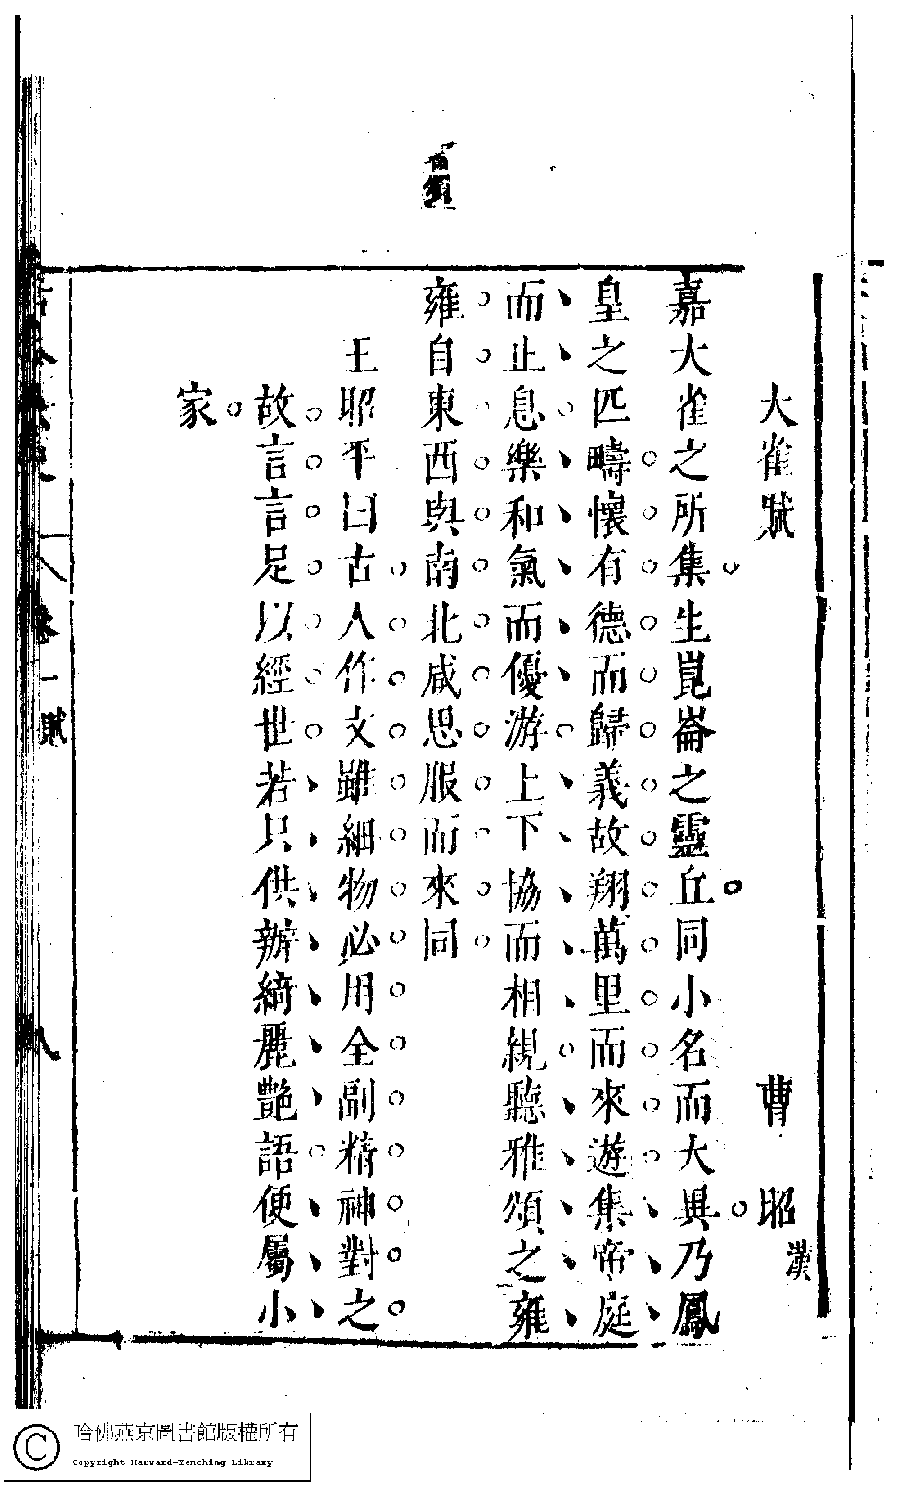 大雀賦 曹 昭 漢
嘉大雀之所集生崑崙之靈丘同小名而大異乃鳳
皇之匹疇懷有德而歸義故翔萬里而來遊集帝庭
而止息樂和氣而優游上下協而相親聽雅頌之雍
雍自東西與南北咸思服而來同
王昭平曰古人作文雖細物必用全副精神對之
故言言足以經世若只供辦綺麗艷語便屬小
家
卷一 賦
八
哈佛燕京圖書館版權所有
Copyright Harvard-Yenching Library